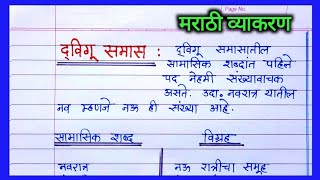 Page No.
मराठी व्याकरण
द्विगू समास : द्विगू समासातील
सामासिक शब्दांत पहिले
पद नेहमी संख्यावाचक
असते. उदा. नवरात्र यातील
नव म्हणजे नऊ ही संख्या आहे.
सामासिक शब्द विग्रह
नवरात्र नऊ रात्रींचा समूह